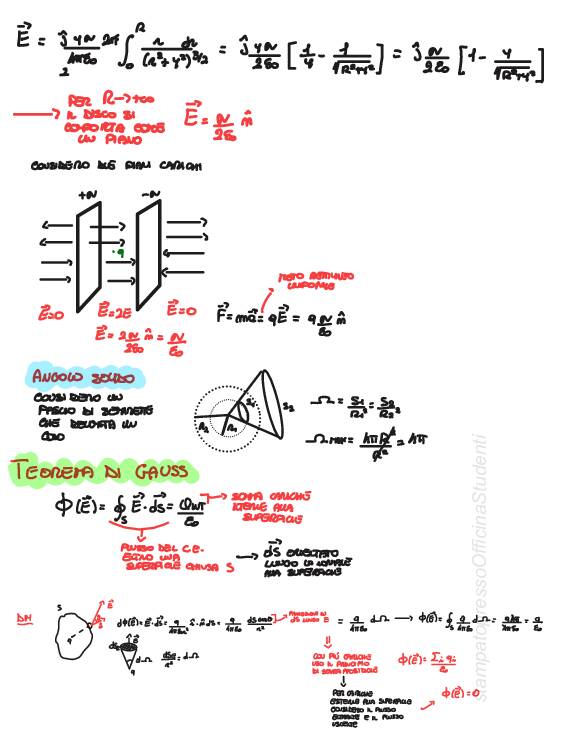 E⃗ = ĵ σy/4πε₀ 2π ∫₀ᴿ r dr/(r²+y²)^3/2 = ĵ σy/2ε₀ [1/y - 1/√R²+y²] = ĵ σ/2ε₀ [1 - y/√R²+y²]
2
PER R→+∞
IL DISCO SI
COMPORTA COME
UN PIANO
E⃗ = σ/2ε₀ n̂
CONSIDERO DUE PIANI CARICHI
+σ -σ
·q
E⃗=0 E⃗=2E E⃗=0
E⃗ = 2σ/2ε₀ n̂ = σ/ε₀
MOTO
UNIFORME
F⃗ = ma⃗ = qE⃗ = q σ/ε₀ n̂
ANGOLO SOLIDO
CONSIDERO UN
FASCIO DI SEMIRETTE
CHE DELIMITA UN
CONO
R₂ R₁ S₁ S₂
Ω = S₁/R₁² = S₂/R₂²
Ω MAX = 4πR²/R² = 4π
TEOREMA DI GAUSS
Φ(E⃗) = ∮s E⃗·ds⃗ = Q INT/ε₀
SOMMA CARICHE
INTERNE ALLA
SUPERFICIE
FLUSSO DEL C.E.
ENTRO UNA
SUPERFICIE CHIUSA S
ds⃗ ORIENTATO
LUNGO LA NORMALE
ALLA SUPERFICIE
DIM
S
E⃗
q
dΦ(E⃗) = E⃗·ds⃗ = q/4πε₀r² r̂·n̂ ds = q/4πε₀ ds cosθ/r²
PROIEZIONE DI
ds LUNGO E
= q/4πε₀ dΩ → Φ(E⃗) = ∮s q/4πε₀ dΩ = q4π/4πε₀ = q/ε₀
dΩ
q
ds₀/r² = dΩ
CON PIÙ CARICHE
USO IL PRINCIPIO
DI SOVRAPPOSIZIONE
Φ(E⃗) = Σi qi/ε₀
PER CARICHE
ESTERNE ALLA SUPERFICIE
CONSIDERO IL FLUSSO
ENTRANTE E IL FLUSSO
USCENTE
Φ(E⃗) = 0
stampatopressoOfficinaStudenti